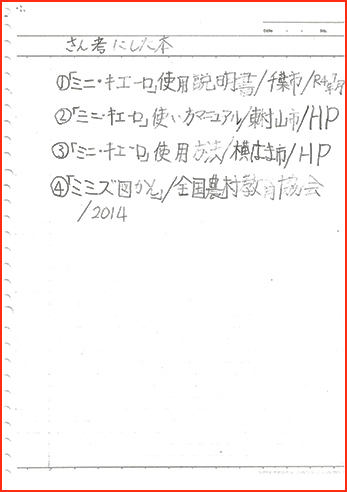 Date ・ ・ No.
さん考にした本
①「ミニ・キエーロ」使用説明書/千葉市/R4年7月
②「ミニ・キエーロ」使い方マニュアル/東村山市/HP
③「ミニ・キエーロ」使用方法/横はま市/HP
④「ミミズ図かん」/全国農村教育協会
/2014